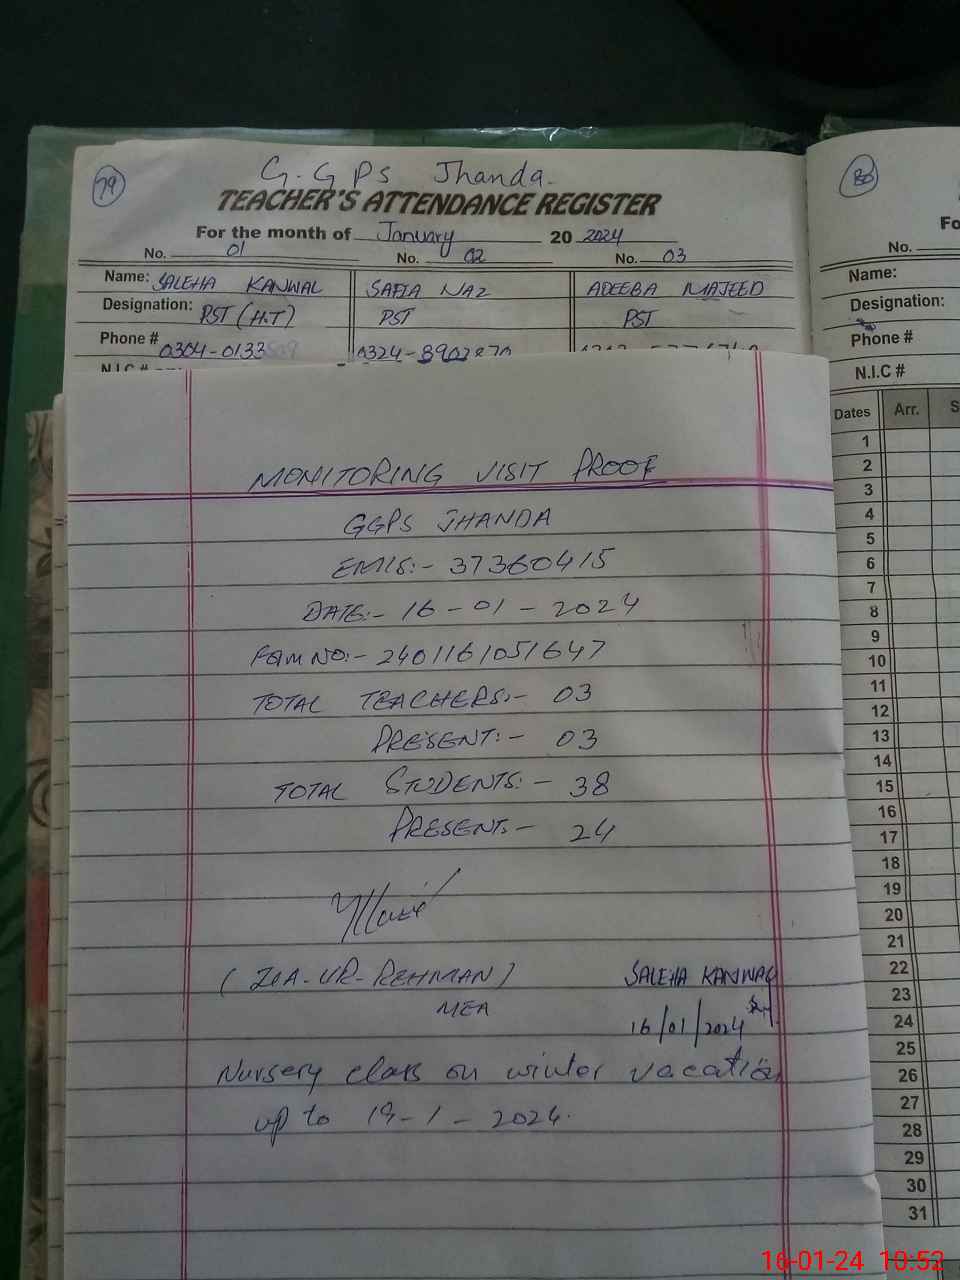 79
G.GPS Jhanda.
TEACHER'S ATTENDANCE REGISTER
For the month of January 20 2024
No. 01 No. 02 No. 03
Name: SALEHA KANWAL SAFIA NAZ ADEEBA MAJEED
Designation: PST (H.T) PST PST
Phone # 0304-0133509 0324-8902870
N.I.C #
MONITORING VISIT PROOF
GGPS JHANDA
EMIS:- 37360415
DATE:- 16-01-2024
FORM NO:- 2401161051647
TOTAL TEACHERS:- 03
PRESENT:- 03
TOTAL STUDENTS:- 38
PRESENT:- 24
(ZIA-UR-REHMAN)
MEA
SALEHA KANWAL
16/01/2024
Nursery class on winter vacation
up to 19-1-2024.
80
Fo
No.
Name:
Designation:
Phone #
N.I.C #
Dates Arr. S
1
2
3
4
5
6
7
8
9
10
11
12
13
14
15
16
17
18
19
20
21
22
23
24
25
26
27
28
29
30
31
16-01-24 10:52